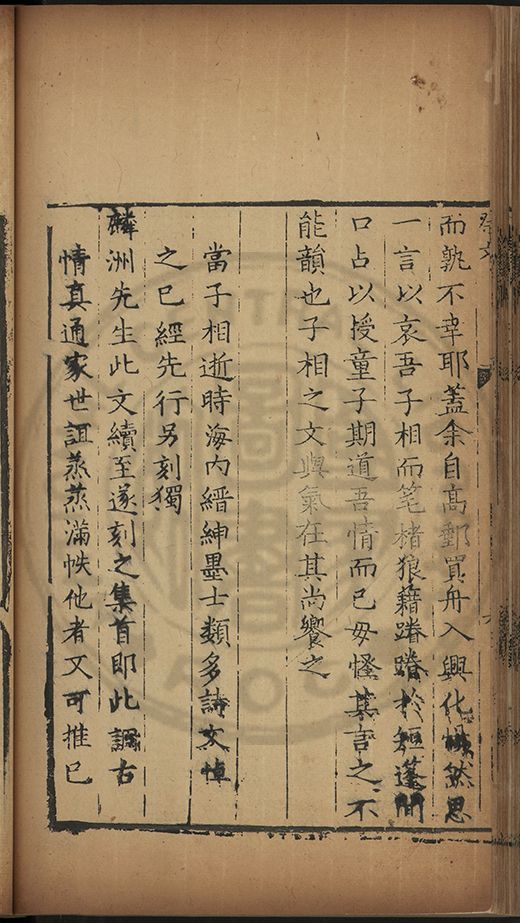 祭文
而孰不幸耶蓋余自高郵買舟入興化慨然思
一言以哀吾子相而筆楮狼藉蹐蹐於短蓬間
口占以授童子期道吾情而已毋怪其言之不
能韻也子相之文與氣在其尚饗之
當子相逝時海内縉紳墨士類多詩文悼
之已經先行另刻獨
麟洲先生此文續至遂刻之集首即此誼古
情真通家世誼蒸蒸滿帙他者又可推已